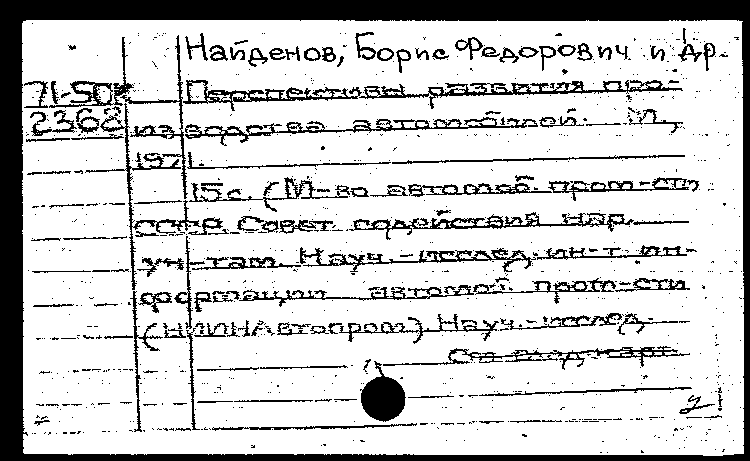 Найденов, Борис Федорович и др.
71-50к Перспективы развития про-
2362 изводства автомобилей. М.,
1971.
15 с. (М-во автомоб. пром-сти
СССР. Совет содействия нар.
ун-там. Науч.-исслед. ин-т. ин-
формации автомоб. пром-сти
(НИИНАвтопром). Науч.-исслед.
См. след. карт.
2